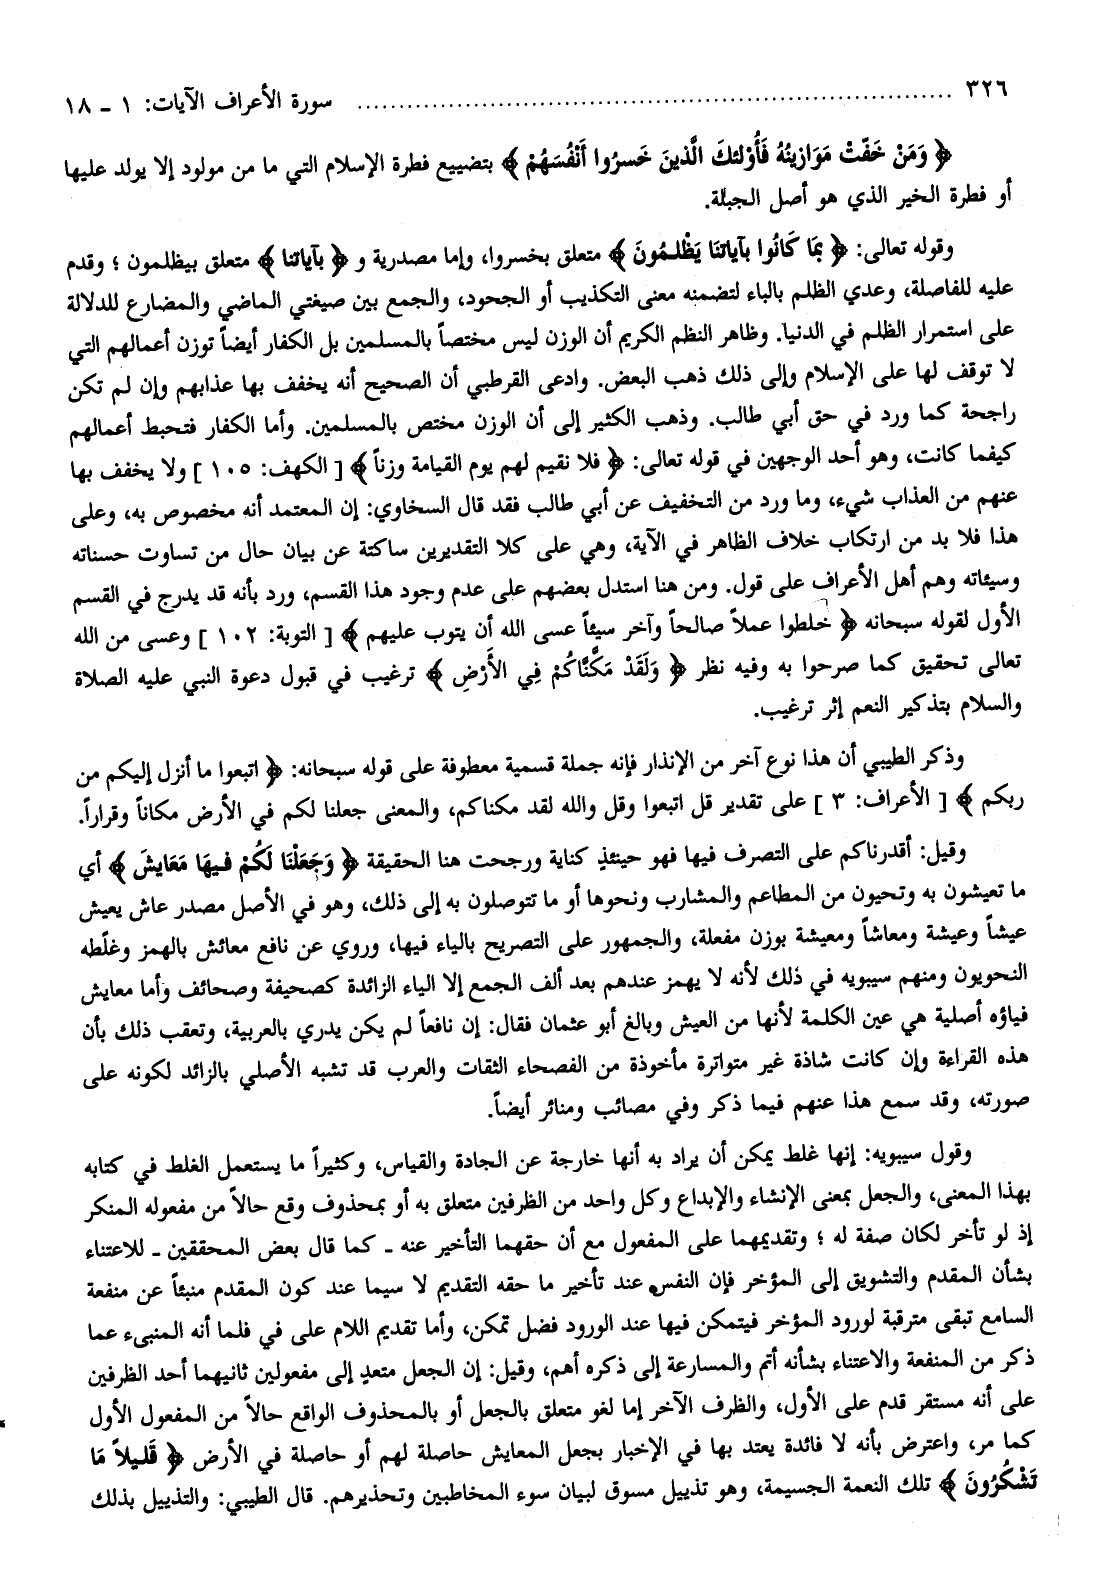 ٣٢٦ ........................................ سورة الأعراف الآيات: ١ ـ ١٨
﴿ وَمَنْ خَفَّتْ مَوَازِينُهُ فَأُوْلئكَ الَّذينَ خَسرُوا أَنْفُسَهُمْ ﴾ بتضييع فطرة الإسلام التي ما من مولود إلا يولد عليها
أو فطرة الخير الذي هو أصل الجبلة.
وقوله تعالى: ﴿ بمَا كَانُوا بآيَاتنَا يَظْلـمُونَ ﴾ متعلق بخسروا، وإما مصدرية و ﴿ بآياتنا ﴾ متعلق بيظلمون ؛ وقدم
عليه للفاصلة، وعدي الظلم بالباء لتضمنه معنى التكذيب أو الجحود، والجمع بين صيغتي الماضي والمضارع للدلالة
على استمرار الظلم في الدنيا. وظاهر النظم الكريم أن الوزن ليس مختصاً بالمسلمين بل الكفار أيضاً توزن أعمالهم التي
لا توقف لها على الإسلام وإلى ذلك ذهب البعض. وادعى القرطبي أن الصحيح أنه يخفف بها عذابهم وإن لم تكن
راجحة كما ورد في حق أبي طالب. وذهب الكثير إلى أن الوزن مختص بالمسلمين. وأما الكفار فتحبط أعمالهم
كيفما كانت، وهو أحد الوجهين في قوله تعالى: ﴿ فلا نقيم لهم يوم القيامة وزناً ﴾ [ الكهف: ١٠٥ ] ولا يخفف بها
عنهم من العذاب شيء، وما ورد من التخفيف عن أبي طالب فقد قال السخاوي: إن المعتمد أنه مخصوص به، وعلى
هذا فلا بد من ارتكاب خلاف الظاهر في الآية، وهي على كلا التقديرين ساكتة عن بيان حال من تساوت حسناته
وسيئاته وهم أهل الأعراف على قول. ومن هنا استدل بعضهم على عدم وجود هذا القسم، ورد بأنه قد يدرج في القسم
الأول لقوله سبحانه ﴿ خلطوا عملاً صالحاً وآخر سيئاً عسى الله أن يتوب عليهم ﴾ [ التوبة: ١٠٢ ] وعسى من الله
تعالى تحقيق كما صرحوا به وفيه نظر ﴿ وَلَقَدْ مَكَّنَّاكُمْ فِي الأَرْضِ ﴾ ترغيب في قبول دعوة النبي عليه الصلاة
والسلام بتذكير النعم إثر ترغيب.
وذكر الطيبي أن هذا نوع آخر من الإنذار فإنه جملة قسمية معطوفة على قوله سبحانه: ﴿ اتبعوا ما أنزل إليكم من
ربكم ﴾ [ الأعراف: ٣ ] على تقدير قل اتبعوا وقل والله لقد مكناكم، والمعنى جعلنا لكم في الأرض مكاناً وقراراً.
وقيل: أقدرناكم على التصرف فيها فهو حينئذٍ كناية ورجحت هنا الحقيقة ﴿ وَجَعَلْنَا لَكُمْ فـيهَا مَعَايشَ ﴾ أي
ما تعيشون به وتحيون من المطاعم والمشارب ونحوها أو ما تتوصلون به إلى ذلك، وهو في الأصل مصدر عاش يعيش
عيشاً وعيشة ومعاشاً ومعيشة بوزن مفعلة، والجمهور على التصريح بالياء فيها، وروي عن نافع معائش بالهمز وغلّطه
النحويون ومنهم سيبويه في ذلك لأنه لا يهمز عندهم بعد ألف الجمع إلا الياء الزائدة كصحيفة وصحائف وأما معايش
فياؤه أصلية هي عين الكلمة لأنها من العيش وبالغ أبو عثمان فقال: إن نافعاً لم يكن يدري بالعربية، وتعقب ذلك بأن
هذه القراءة وإن كانت شاذة غير متواترة مأخوذة من الفصحاء الثقات والعرب قد تشبه الأصلي بالزائد لكونه على
صورته، وقد سمع هذا عنهم فيما ذكر وفي مصائب ومنائر أيضاً.
وقول سيبويه: إنها غلط يمكن أن يراد به أنها خارجة عن الجادة والقياس، وكثيراً ما يستعمل الغلط في كتابه
بهذا المعنى، والجعل بمعنى الإنشاء والإبداع وكل واحد من الظرفين متعلق به أو بمحذوف وقع حالاً من مفعوله المنكر
إذ لو تأخر لكان صفة له ؛ وتقديمهما على المفعول مع أن حقهما التأخير عنه ـ كما قال بعض المحققين ـ للاعتناء
بشأن المقدم والتشويق إلى المؤخر فإن النفس عند تأخير ما حقه التقديم لا سيما عند كون المقدم منبئاً عن منفعة
السامع تبقى مترقبة لورود المؤخر فيتمكن فيها عند الورود فضل تمكن، وأما تقديم اللام على في فلما أنه المنبىء عما
ذكر من المنفعة والاعتناء بشأنه أتم والمسارعة إلى ذكره أهم، وقيل: إن الجعل متعدٍ إلى مفعولين ثانيهما أحد الظرفين
على أنه مستقر قدم على الأول، والظرف الآخر إما لغو متعلق بالجعل أو بالمحذوف الواقع حالاً من المفعول الأول
كما مر، واعترض بأنه لا فائدة يعتد بها في الإخبار بجعل المعايش حاصلة لهم أو حاصلة في الأرض ﴿ قَلـيلاً مَا
تَشْكُرُونَ ﴾ تلك النعمة الجسيمة، وهو تذييل مسوق لبيان سوء المخاطبين وتحذيرهم. قال الطيبي: والتذييل بذلك